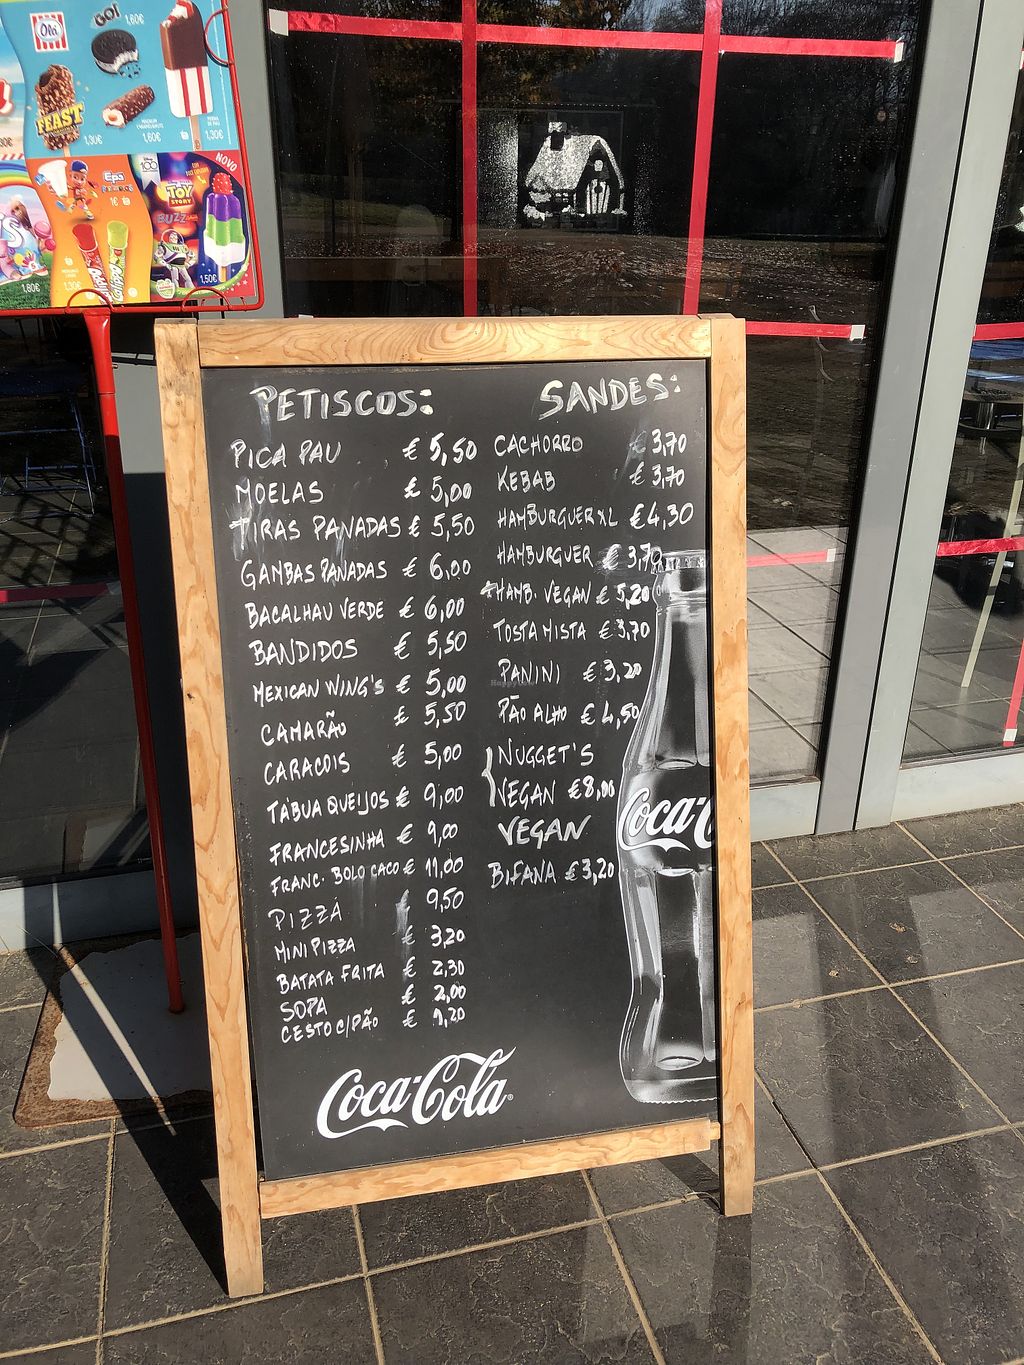 Olá
GO!
1,60€
FEAST
1,30€
1,60€
1,30€
Epá
1€
NOVO
TOY STORY
BUZZ
1,80€
1,30€
1,50€
PETISCOS:
PICA PAU € 5,50
MOELAS € 5,00
TIRAS PANADAS € 5,50
GAMBAS PANADAS € 6,00
BACALHAU VERDE € 6,00
BANDIDOS € 5,50
MEXICAN WING'S € 5,00
CAMARÃO € 5,50
CARACOIS € 5,00
TÁBUA QUEIJOS € 9,00
FRANCESINHA € 9,00
FRANC. BOLO CACO € 11,00
PIZZA € 9,50
MINI PIZZA € 3,20
BATATA FRITA € 2,30
SOPA € 2,00
CESTO C/PÃO € 1,20
SANDES:
CACHORRO € 3,70
KEBAB € 3,70
HAMBURGUER XL € 4,30
HAMBURGUER € 3,70
HAMB. VEGAN € 5,20
TOSTA MISTA € 3,70
PANINI € 3,20
PÃO ALHO € 4,50
NUGGET'S
VEGAN € 8,00
VEGAN
BIFANA € 3,20
Coca-C
Coca-Cola